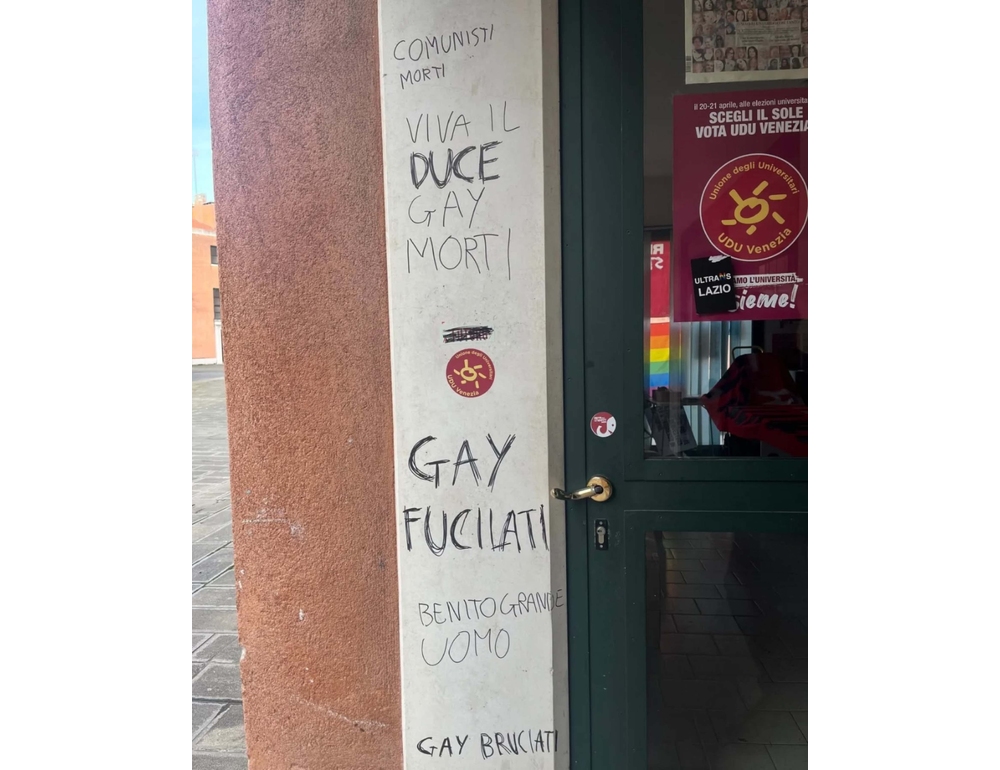 COMUNISTI
MORTI
VIVA IL
DUCE
GAY
MORTI
Unione degli Universitari
UDU Venezia
GAY
FUCILATI
BENITO GRANDE
UOMO
GAY BRUCIATI
il 20-21 aprile, alle elezioni universita
SCEGLI IL SOLE
VOTA UDU VENEZIA
Unione degli Universitari
UDU Venezia
ULTRA
LAZIO
AMO L'UNIVERSITÀ,
sieme!